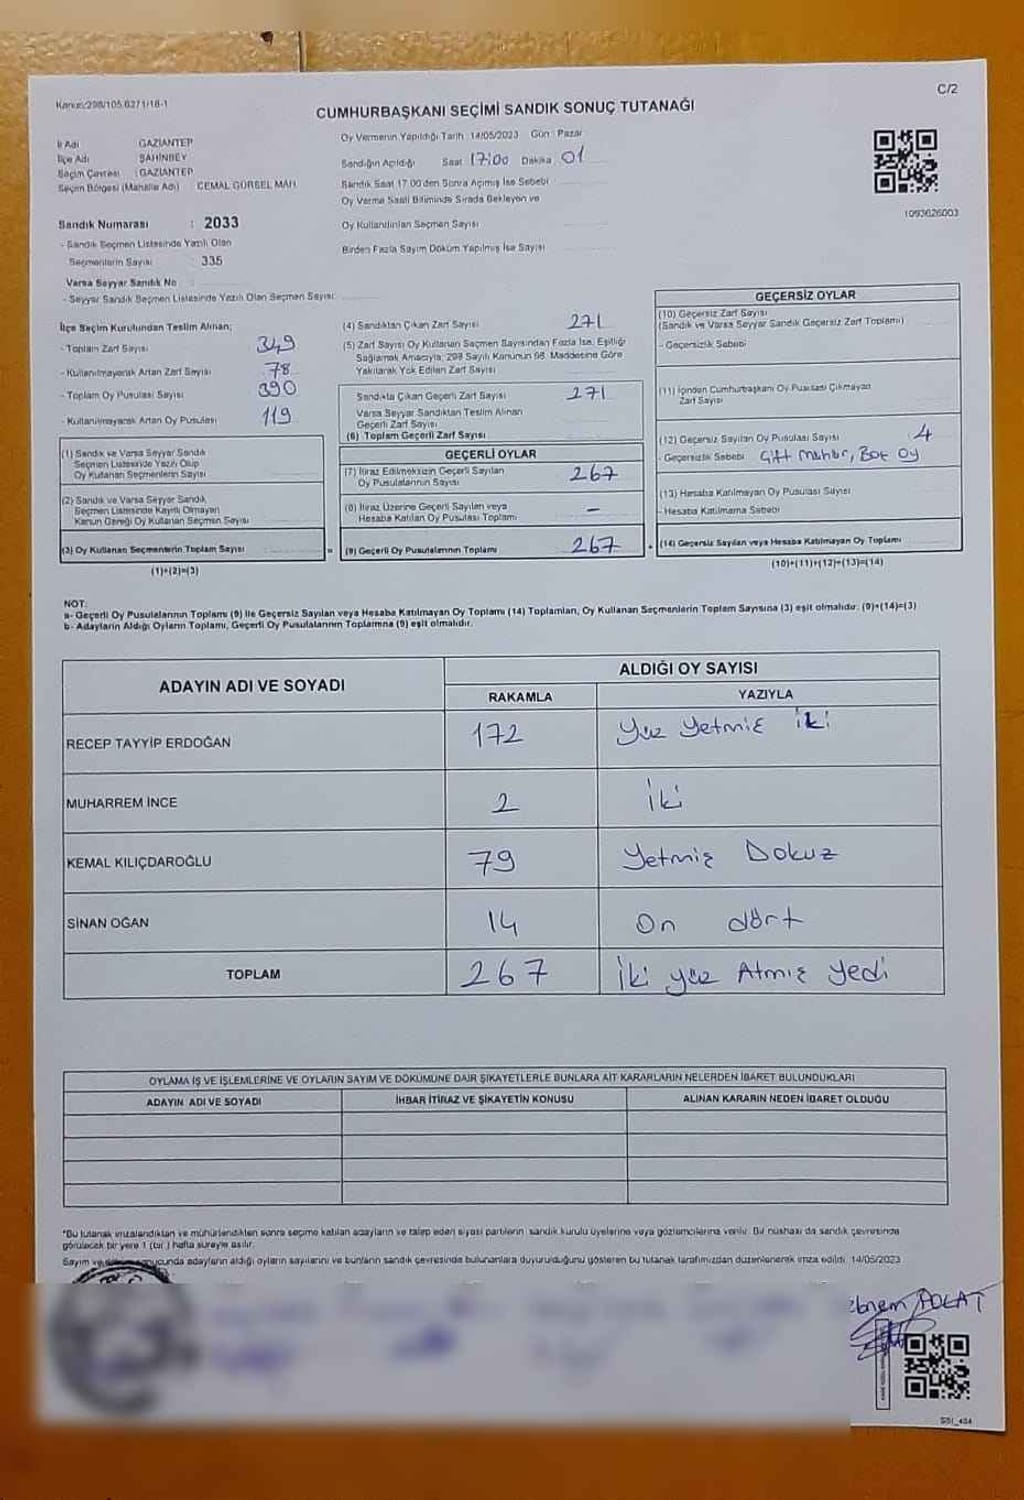 Kanun:298/105,6271/18-1
C/2
CUMHURBAŞKANI SEÇİMİ SANDIK SONUÇ TUTANAĞI
İl Adı GAZİANTEP
İlçe Adı ŞAHİNBEY
Seçim Çevresi : GAZİANTEP
Seçim Bölgesi (Mahalle Adı) CEMAL GÜRSEL MAH.
Oy Vermenin Yapıldığı Tarih : 14/05/2023 Gün : Pazar
Sandığın Açıldığı Saat 17:00 Dakika 01
Sandık Saat 17.00'den Sonra Açılmış İse Sebebi
Oy Verme Saati Bitiminde Sırada Bekleyen ve
Oy Kullandırılan Seçmen Sayısı
Birden Fazla Sayım Döküm Yapılmış İse Sayısı
1093626003
Sandık Numarası : 2033
- Sandık Seçmen Listesinde Yazılı Olan
Seçmenlerin Sayısı : 335
Varsa Seyyar Sandık No
- Seyyar Sandık Seçmen Listesinde Yazılı Olan Seçmen Sayısı:
İlçe Seçim Kurulundan Teslim Alınan;
- Toplam Zarf Sayısı 349
- Kullanılmayarak Artan Zarf Sayısı 78
- Toplam Oy Pusulası Sayısı 390
- Kullanılmayarak Artan Oy Pusulası 119
(1) Sandık ve Varsa Seyyar Sandık
Seçmen Listesinde Yazılı Olup
Oy Kullanan Seçmenlerin Sayısı
(2) Sandık ve Varsa Seyyar Sandık
Seçmen Listesinde Kayıtlı Olmayan
Kanun Gereği Oy Kullanan Seçmen Sayısı
(3) Oy Kullanan Seçmenlerin Toplam Sayısı =
(1)+(2)=(3)
(4) Sandıktan Çıkan Zarf Sayısı 271
(5) Zarf Sayısı Oy Kullanan Seçmen Sayısından Fazla İse, Eşitliği
Sağlamak Amacıyla, 298 Sayılı Kanunun 98. Maddesine Göre
Yakılarak Yok Edilen Zarf Sayısı
Sandıkta Çıkan Geçerli Zarf Sayısı 271
Varsa Seyyar Sandıktan Teslim Alınan
Geçerli Zarf Sayısı
(6) Toplam Geçerli Zarf Sayısı
GEÇERLİ OYLAR
(7) İtiraz Edilmeksizin Geçerli Sayılan
Oy Pusulalarının Sayısı 267
(8) İtiraz Üzerine Geçerli Sayılan veya
Hesaba Katılan Oy Pusulası Toplamı -
(9) Geçerli Oy Pusulalarının Toplamı 267 +
GEÇERSİZ OYLAR
(10) Geçersiz Zarf Sayısı
(Sandık ve Varsa Seyyar Sandık Geçersiz Zarf Toplamı)
- Geçersizlik Sebebi
(11) İçinden Cumhurbaşkanı Oy Pusulası Çıkmayan
Zarf Sayısı
(12) Geçersiz Sayılan Oy Pusulası Sayısı 4
- Geçersizlik Sebebi Çift Mühür, Boş Oy
(13) Hesaba Katılmayan Oy Pusulası Sayısı
- Hesaba Katılmama Sebebi
(14) Geçersiz Sayılan veya Hesaba Katılmayan Oy Toplamı
(10)+(11)+(12)+(13)=(14)
NOT:
a- Geçerli Oy Pusulalarının Toplamı (9) ile Geçersiz Sayılan veya Hesaba Katılmayan Oy Toplamı (14) Toplamları, Oy Kullanan Seçmenlerin Toplam Sayısına (3) eşit olmalıdır. (9)+(14)=(3)
b- Adayların Aldığı Oyların Toplamı, Geçerli Oy Pusulalarının Toplamına (9) eşit olmalıdır.
ADAYIN ADI VE SOYADI
ALDIĞI OY SAYISI
RAKAMLA YAZIYLA
RECEP TAYYİP ERDOĞAN 172 Yüz Yetmiş iki
MUHARREM İNCE 2 İki
KEMAL KILIÇDAROĞLU 79 Yetmiş Dokuz
SİNAN OĞAN 14 On dört
TOPLAM 267 İki yüz Atmış Yedi
OYLAMA İŞ VE İŞLEMLERİNE VE OYLARIN SAYIM VE DÖKÜMÜNE DAİR ŞİKAYETLERLE BUNLARA AİT KARARLARIN NELERDEN İBARET BULUNDUKLARI
ADAYIN ADI VE SOYADI İHBAR İTİRAZ VE ŞİKAYETİN KONUSU ALINAN KARARIN NEDEN İBARET OLDUĞU
*Bu tutanak imzalandıktan ve mühürlendikten sonra seçime katılan adayların ve talep eden siyasi partilerin sandık kurulu üyelerine veya gözlemcilerine verilir. Bir nüshası da sandık çevresinde
görülecek bir yere 1 (bir) hafta süreyle asılır.
Sayım ve sonucunda adayların aldığı oyların sayılarını ve bunların sandık çevresinde bulunanlara duyurulduğunu gösteren bu tutanak tarafımızdan düzenlenerek imza edildi. 14/05/2023
ebnem POLAT